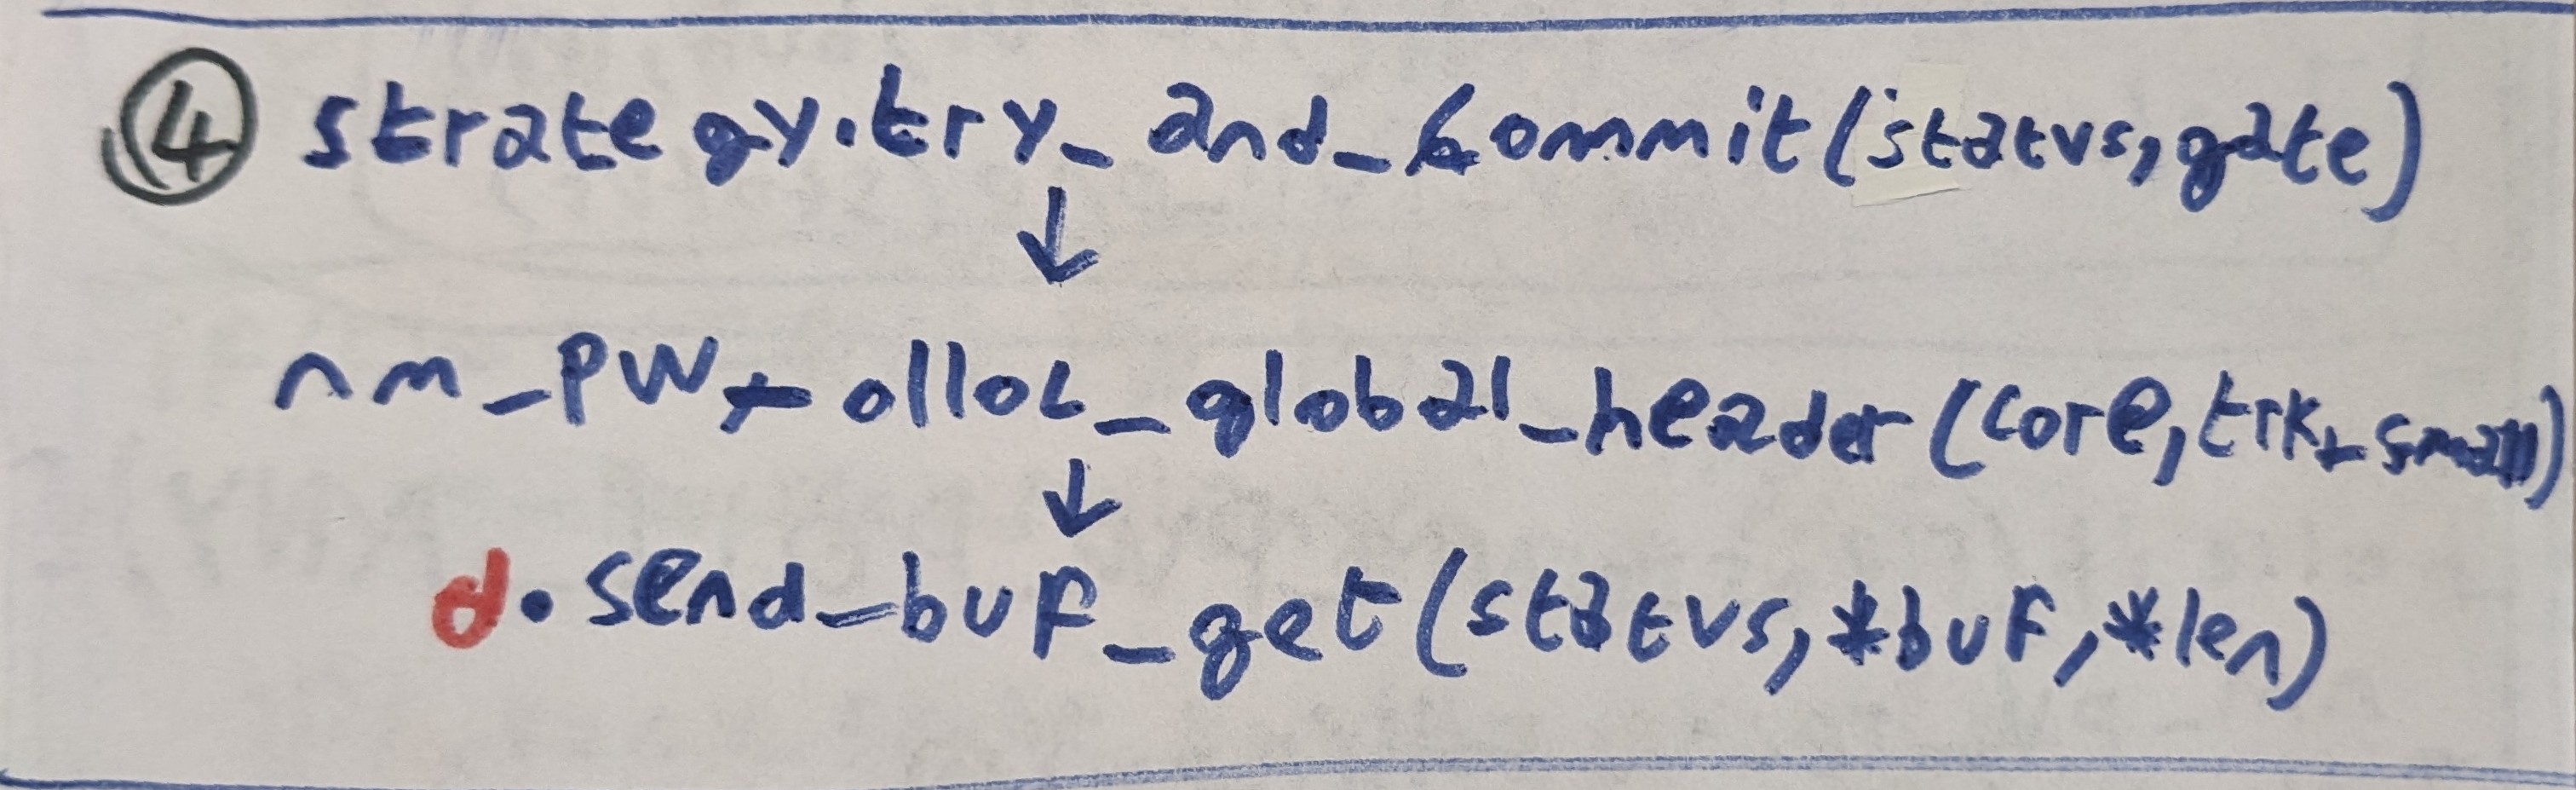 ④ strategy.try_and_commit(status,gate)
↓
nm_pw_alloc_global_header(core,trk_small)
↓
d.send_buf_get(status,*buf,*len)